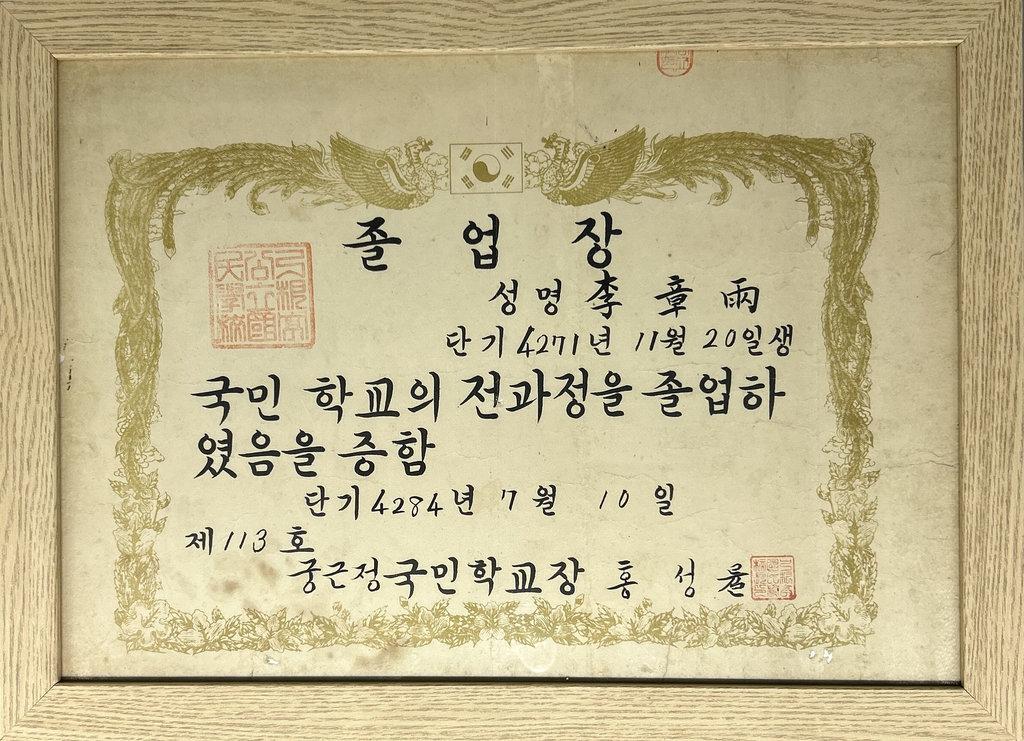 졸업장
성명 李章雨
단기 4271년 11월 20일생
국민 학교의 전과정을 졸업하
였음을 증함
단기 4284년 7월 10일
제 113 호
궁근정국민학교장 홍 성